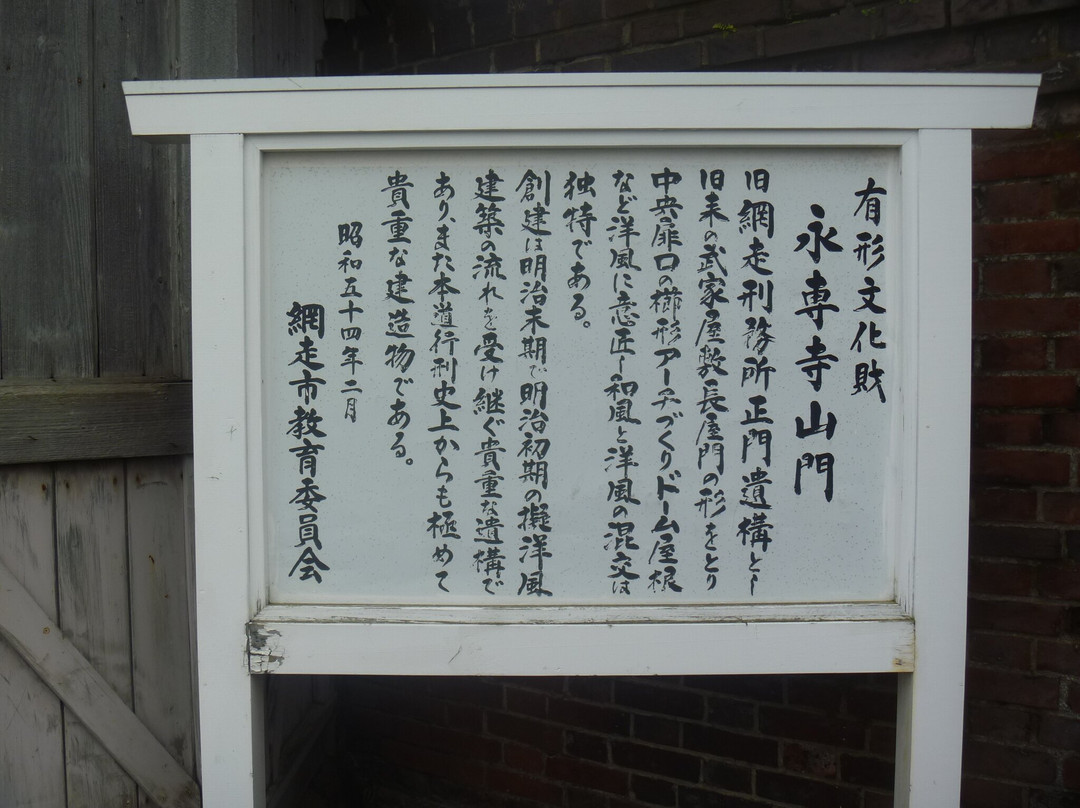 有形文化財
永専寺山門
旧網走刑務所正門遺構とし
旧来の武家屋敷長屋門の形をとり
中央扉口の櫛形アーチづくりドーム屋根
など洋風に意匠し和風と洋風の混交は
独特である。
創建は明治末期で明治初期の擬洋風
建築の流れを受け継ぐ貴重な遺構で
あり、また本道行刑史上からも極めて
貴重な建造物である。
昭和五十四年二月
網走市教育委員会